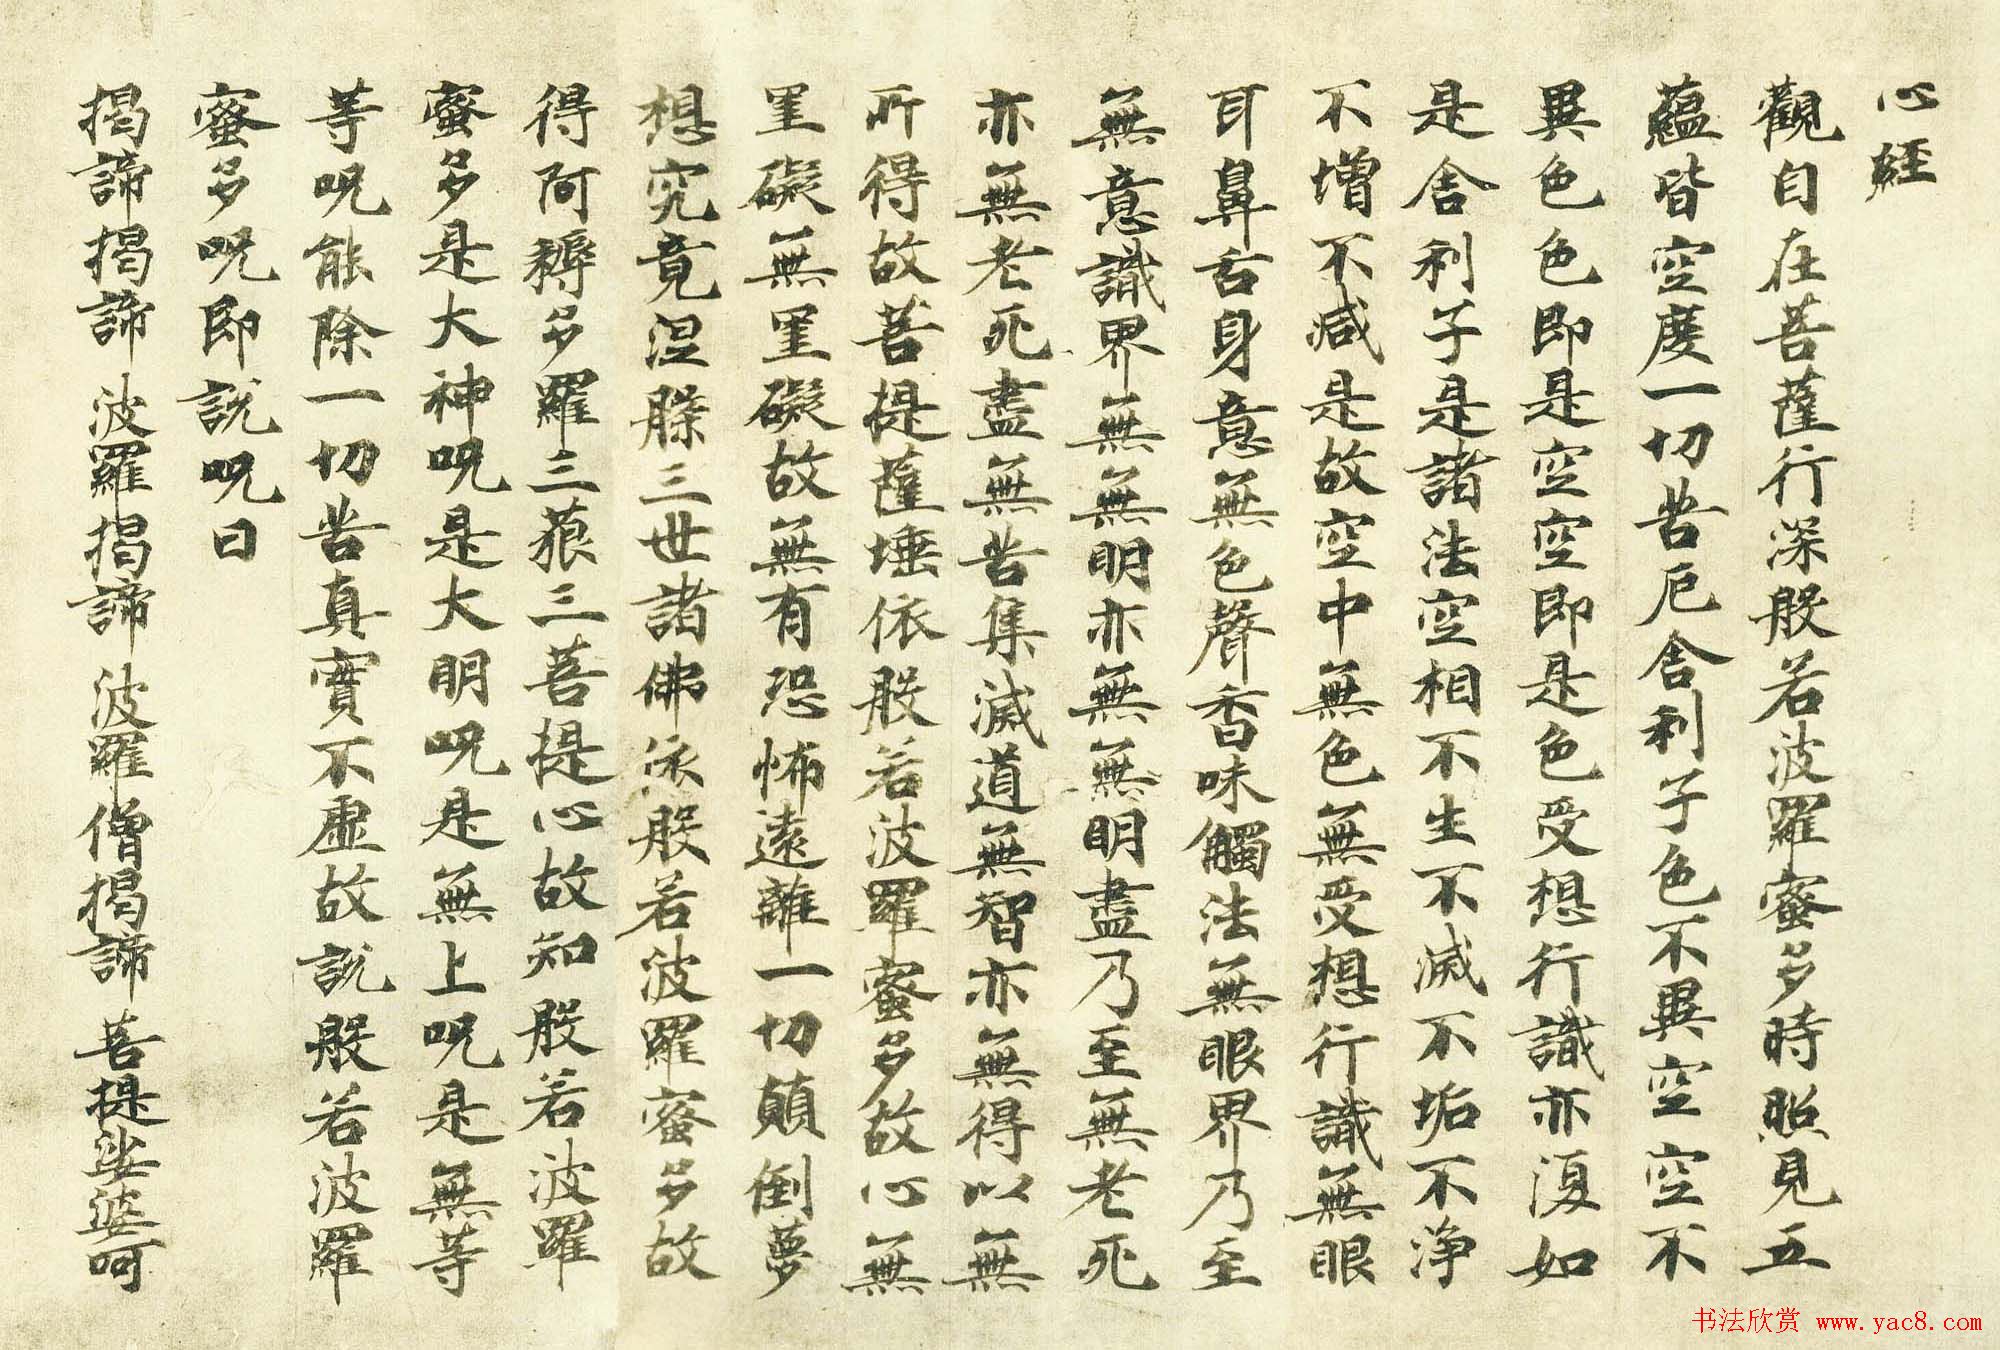 心經
觀自在菩薩行深般若波羅蜜多時照見五
蘊皆空度一切苦厄舍利子色不異空空不
異色色即是空空即是色受想行識亦復如
是舍利子是諸法空相不生不滅不垢不淨
不增不減是故空中無色無受想行識無眼
耳鼻舌身意無色聲香味觸法無眼界乃至
無意識界無無明亦無無明盡乃至無老死
亦無老死盡無苦集滅道無智亦無得以無
所得故菩提薩埵依般若波羅蜜多故心無
罣礙無罣礙故無有恐怖遠離一切顛倒夢
想究竟涅槃三世諸佛依般若波羅蜜多故
得阿耨多羅三藐三菩提心故知般若波羅
蜜多是大神呪是大明呪是無上呪是無等
等呪能除一切苦真實不虛故說般若波羅
蜜多呪即說呪曰
揭諦揭諦 波羅揭諦 波羅僧揭諦 菩提娑婆呵
书法欣赏 www.yac8.com